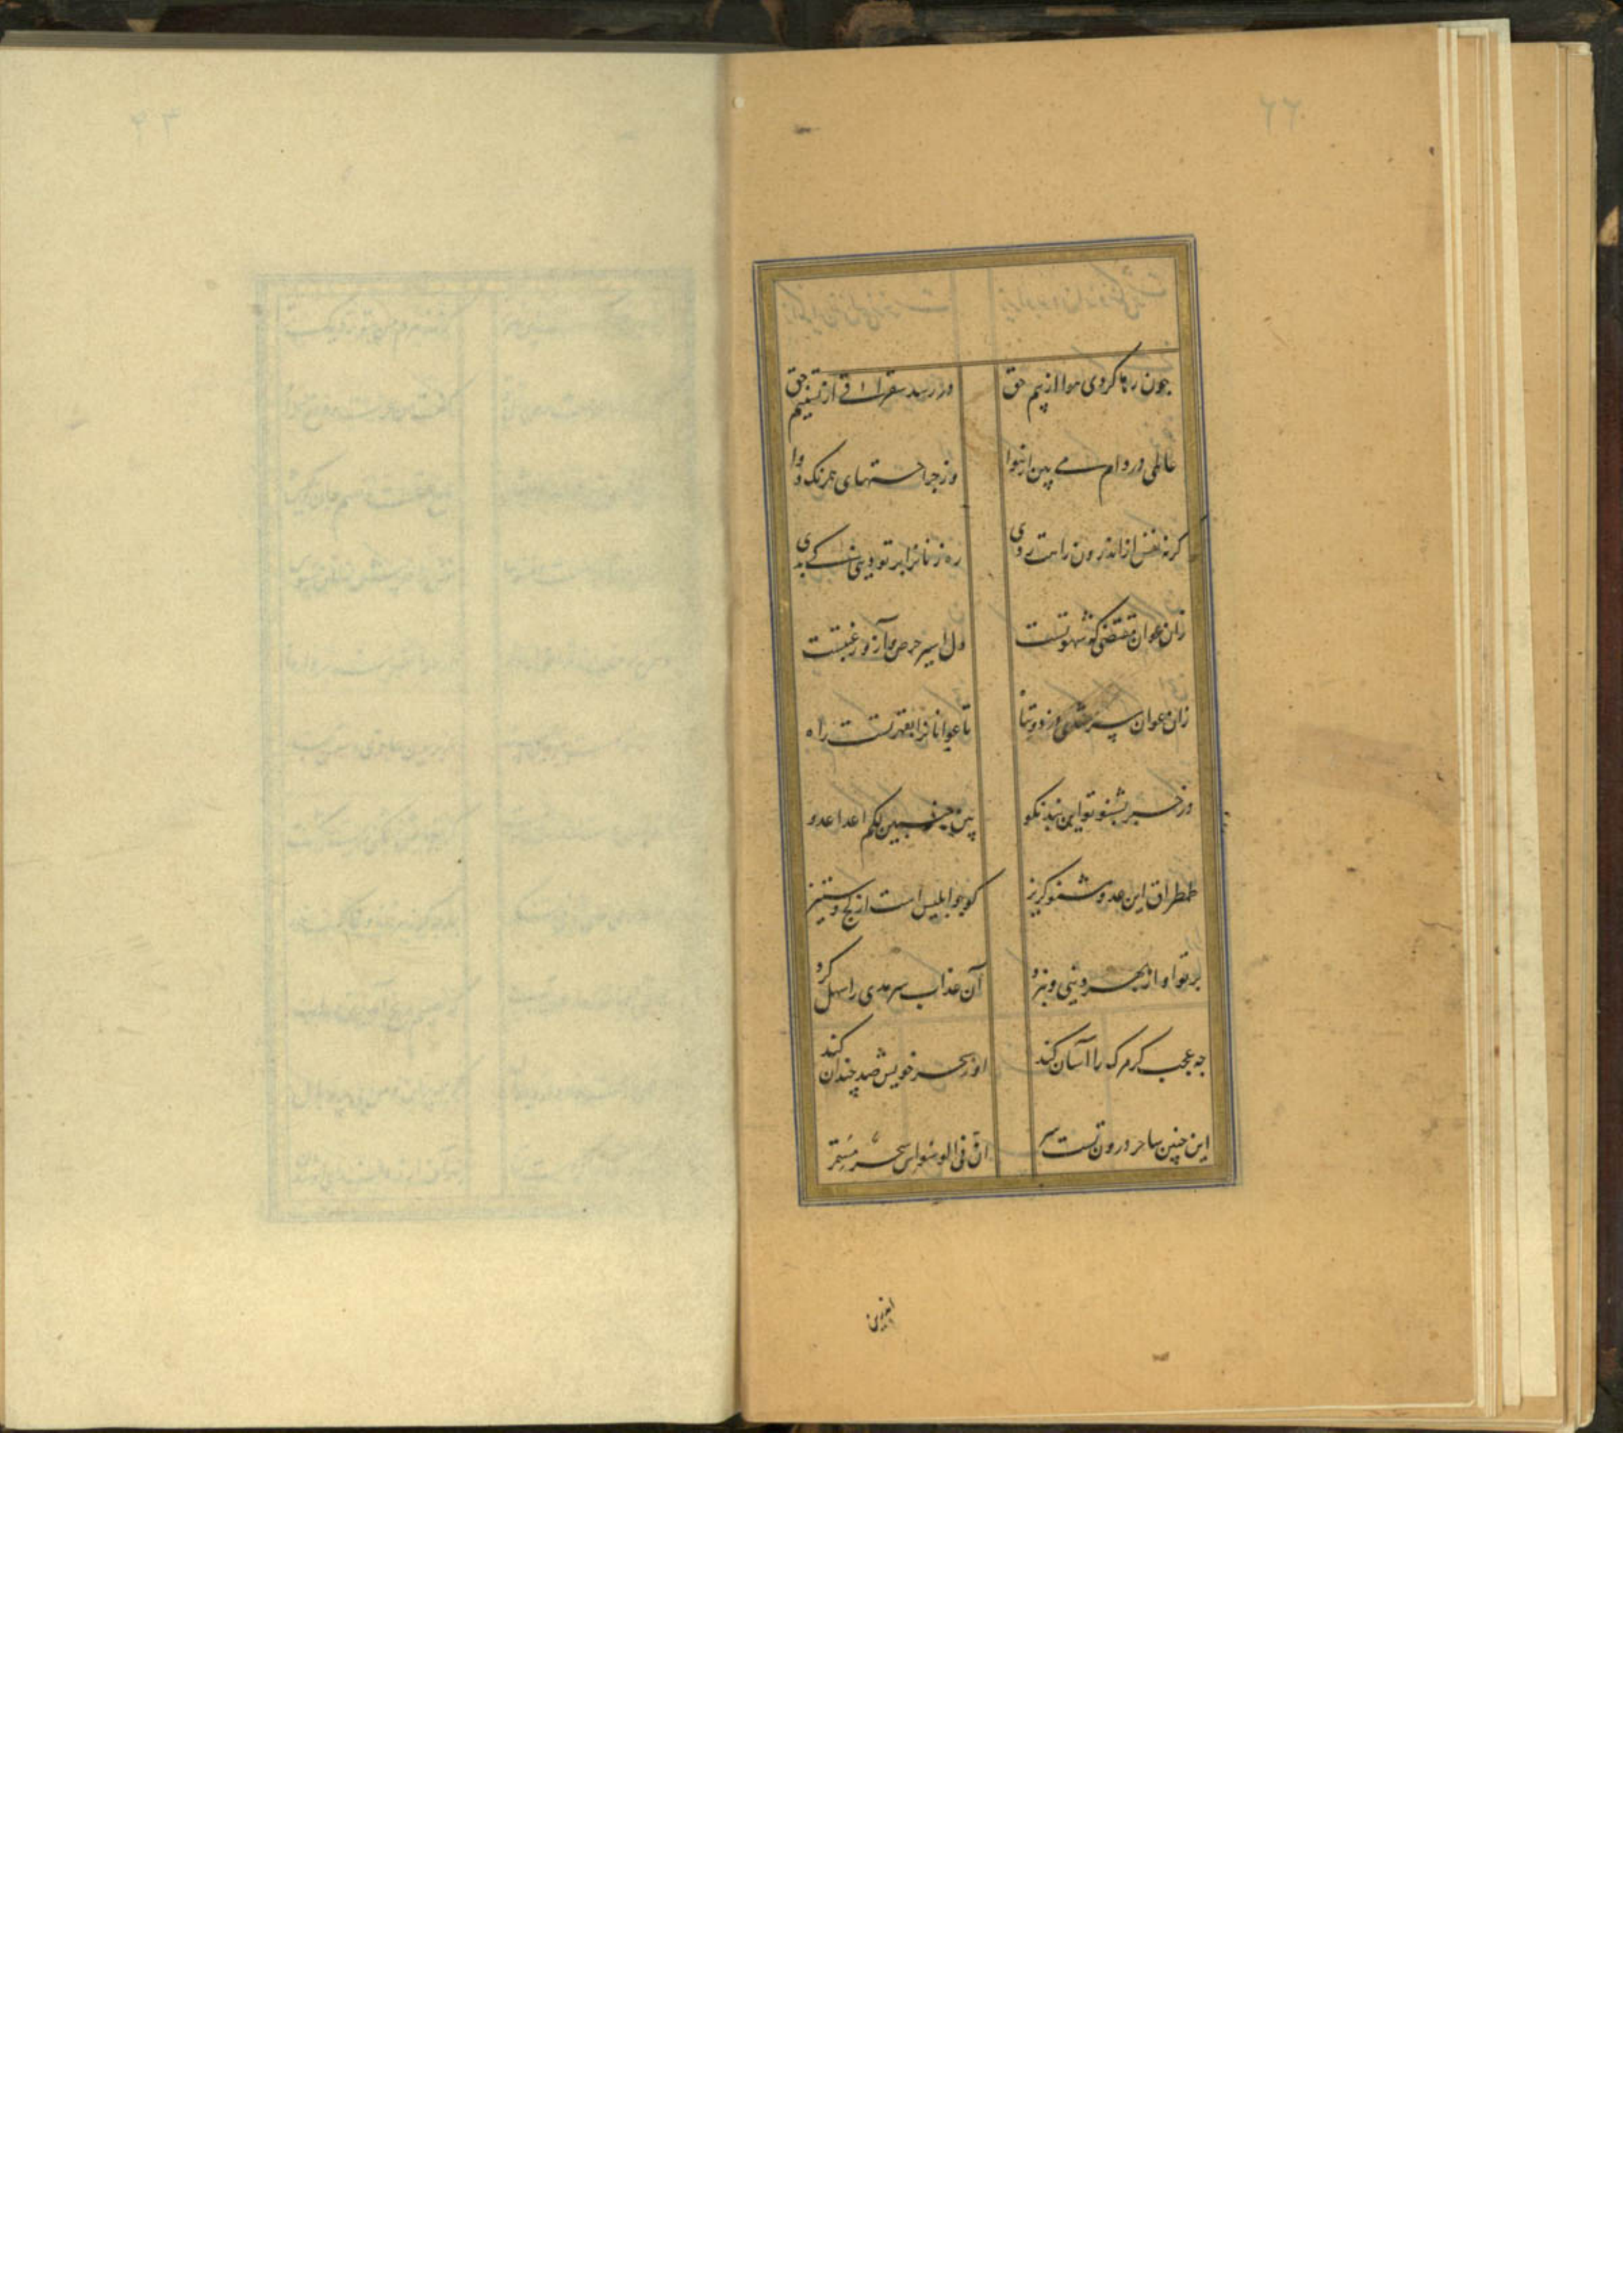 چون رها کردی هوا از بیم حق
در رسد سغراق از تسنیم حق
عالمی در دام می بین از هوا
وز جراحتهای همرنگ دوا
گرنه نفس از اندرون راهت زدی
ره زنانرا بر تو دستی کی بدی
زان عوان مقتضی که شهوتست
دل اسیر حرص و آز و رغبتست
زان عوان سر شدی دزد و تباه
تا عوانانرا بقهر تست راه
در خبر بشنو تو این پند نکو
بین جنبیکم لکم اعدا عدو
طمطراق این عدو مشنو گریز
کو چو ابلیس است از لج و ستیز
بر تو او از بهر دنیی و نبرد
آن عذاب سرمدی را سهل کرد
چه عجب گر مرگ را آسان کند
او ز سحر خویش صد چندان کند
این چنین ساحر درون تست سر
ان فی الوسواس سحر مستمر